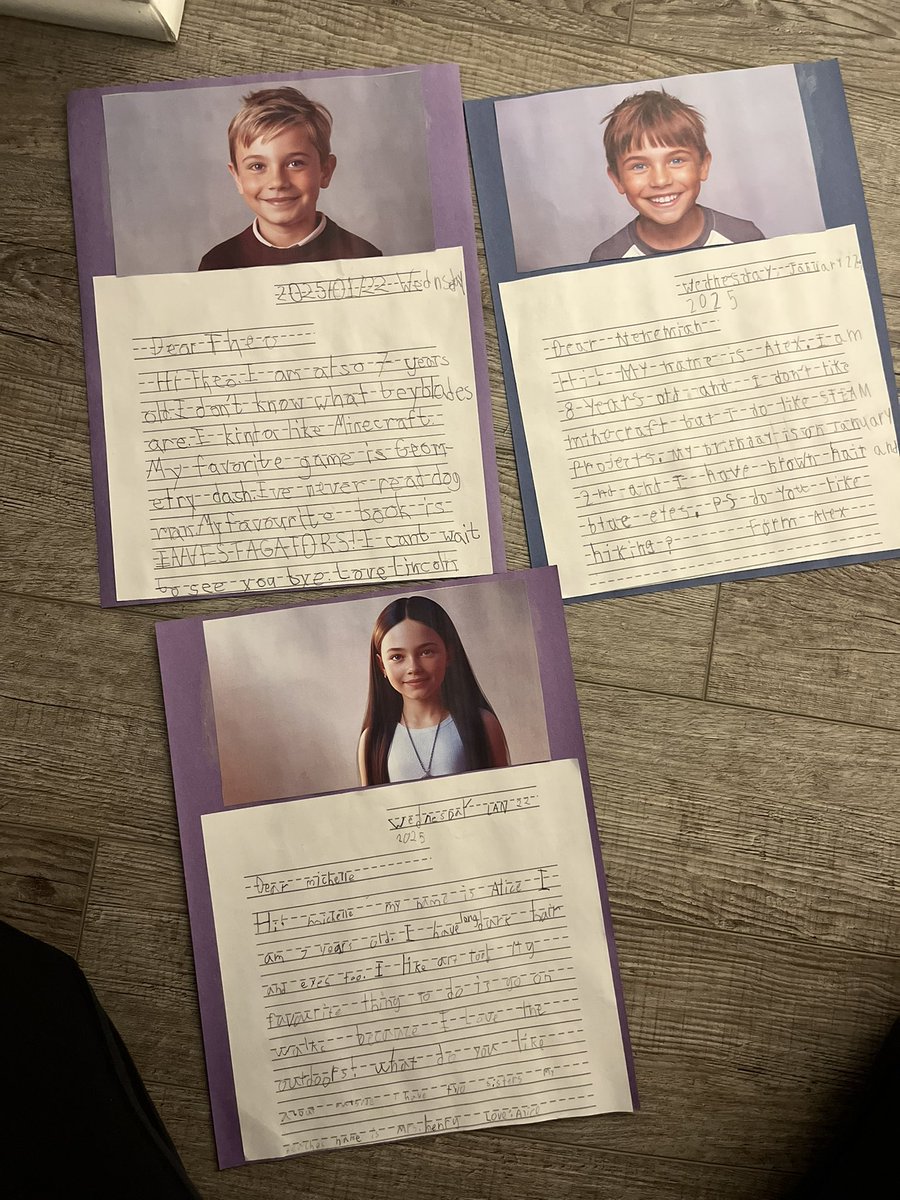 2025/01/22 Wednsday
Dear Theo
Hi Theo. I am also 7 years
old. I don't know what beyblades
are. I kinta like Minecraft.
My favorite game is Geom
etry dash. I've never read dog
man. My favourite book is
INVESTAGATORS! I can't wait
to see you bye Love Lincoln
Wednesday January 22
2025
Dear Nehemiah
Hi! My name is Alex. I am
8 years old and I don't like
mincraft but I do like STEAM
projects. My birthday is on January
2nd and I have brown hair and
blue eyes. PS do you like
hiking? form Alex
Wednesday JAN 22
2025
Dear michelle
Hi! michelle my name is Alice I
am 7 years old. I have long hair
and eyes too. I like art too! My
favourite thing to do is go on
walks because I Love the
outdoors! what do you like
I have two sisters my
name is Mrs. henry Love Alice